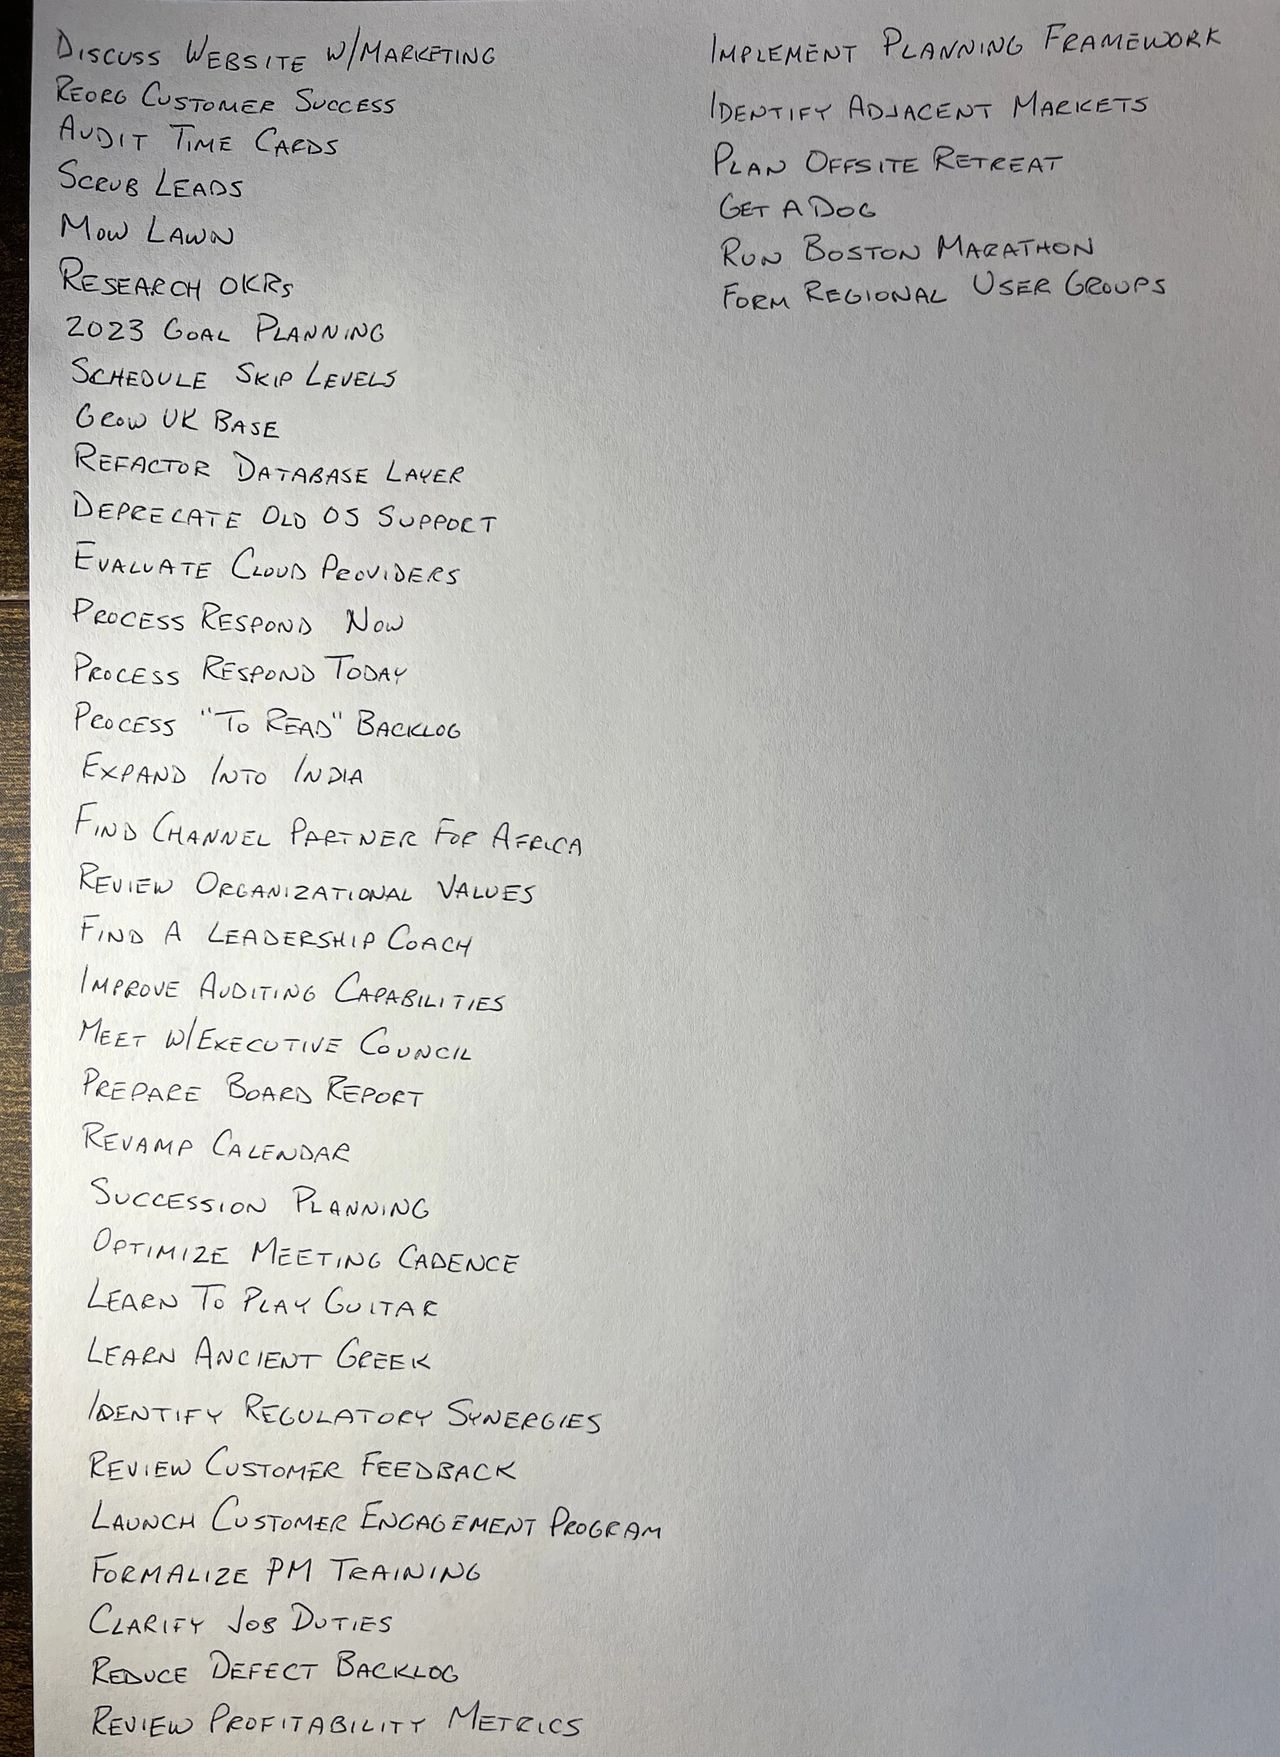 DISCUSS WEBSITE W/MARKETING
REORG CUSTOMER SUCCESS
AUDIT TIME CARDS
SCRUB LEADS
MOW LAWN
RESEARCH OKRs
2023 GOAL PLANNING
SCHEDULE SKIP LEVELS
GROW UK BASE
REFACTOR DATABASE LAYER
DEPRECATE OLD OS SUPPORT
EVALUATE CLOUD PROVIDERS
PROCESS RESPOND NOW
PROCESS RESPOND TODAY
PROCESS "TO READ" BACKLOG
EXPAND INTO INDIA
FIND CHANNEL PARTNER FOR AFRICA
REVIEW ORGANIZATIONAL VALUES
FIND A LEADERSHIP COACH
IMPROVE AUDITING CAPABILITIES
MEET W/EXECUTIVE COUNCIL
PREPARE BOARD REPORT
REVAMP CALENDAR
SUCCESSION PLANNING
OPTIMIZE MEETING CADENCE
LEARN TO PLAY GUITAR
LEARN ANCIENT GREEK
IDENTIFY REGULATORY SYNERGIES
REVIEW CUSTOMER FEEDBACK
LAUNCH CUSTOMER ENGAGEMENT PROGRAM
FORMALIZE PM TRAINING
CLARIFY JOB DUTIES
REDUCE DEFECT BACKLOG
REVIEW PROFITABILITY METRICS
IMPLEMENT PLANNING FRAMEWORK
IDENTIFY ADJACENT MARKETS
PLAN OFFSITE RETREAT
GET A DOG
RUN BOSTON MARATHON
FORM REGIONAL USER GROUPS